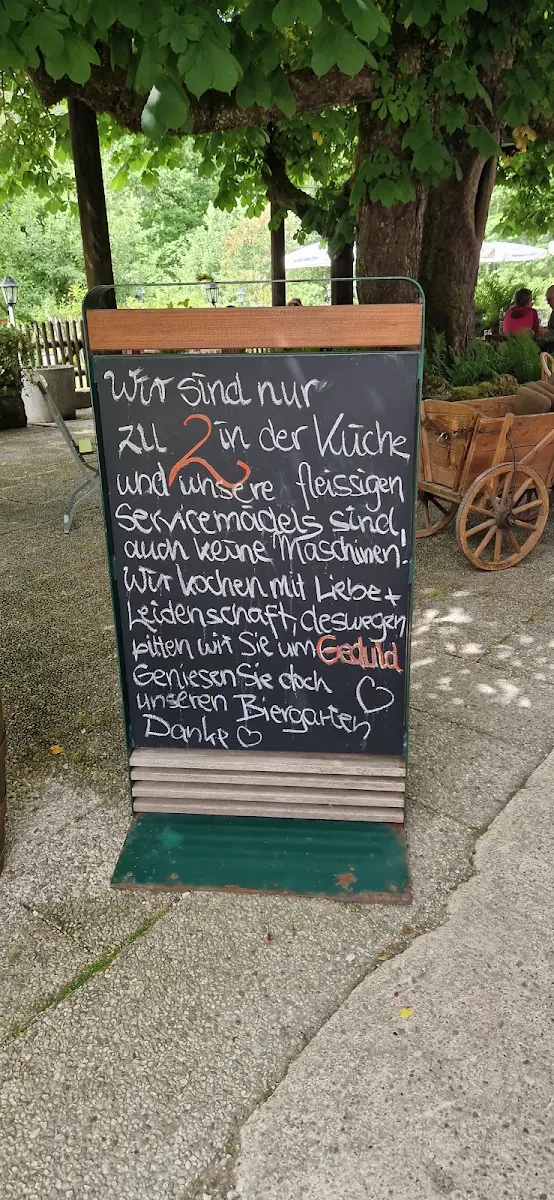 Wir sind nur
zu 2 in der Küche
und unsere fleissigen
Servicemädels sind
auch keine Maschinen!
Wir kochen mit Liebe +
Leidenschaft, deswegen
bitten wir Sie um Geduld
Geniesen Sie doch
unseren Biergarten
Danke